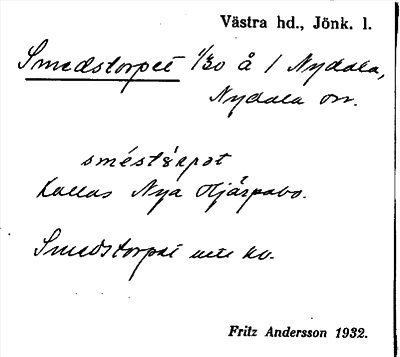 Västra hd., Jönk. l.
Smedstorpet 1/30 å 1 Nydala,
Nydala sn.
sméstårpet
Kallas Nya Hjärpabo.
Smedstorpet ute kv.
Fritz Andersson 1932.